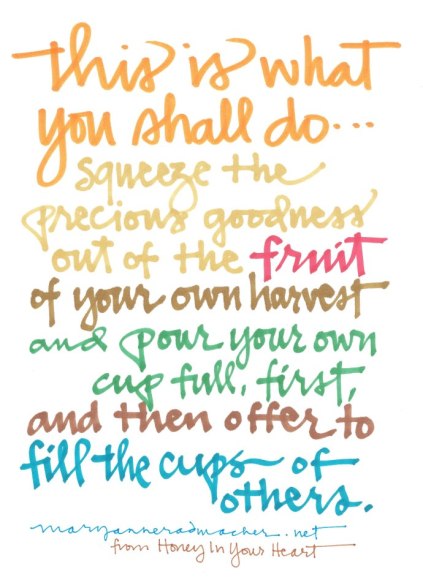 this is what
you shall do...
squeeze the
precious goodness
out of the fruit
of your own harvest
and pour your own
cup full, first,
and then offer to
fill the cups of
others.
maryanneradmacher.net
from Honey In Your Heart